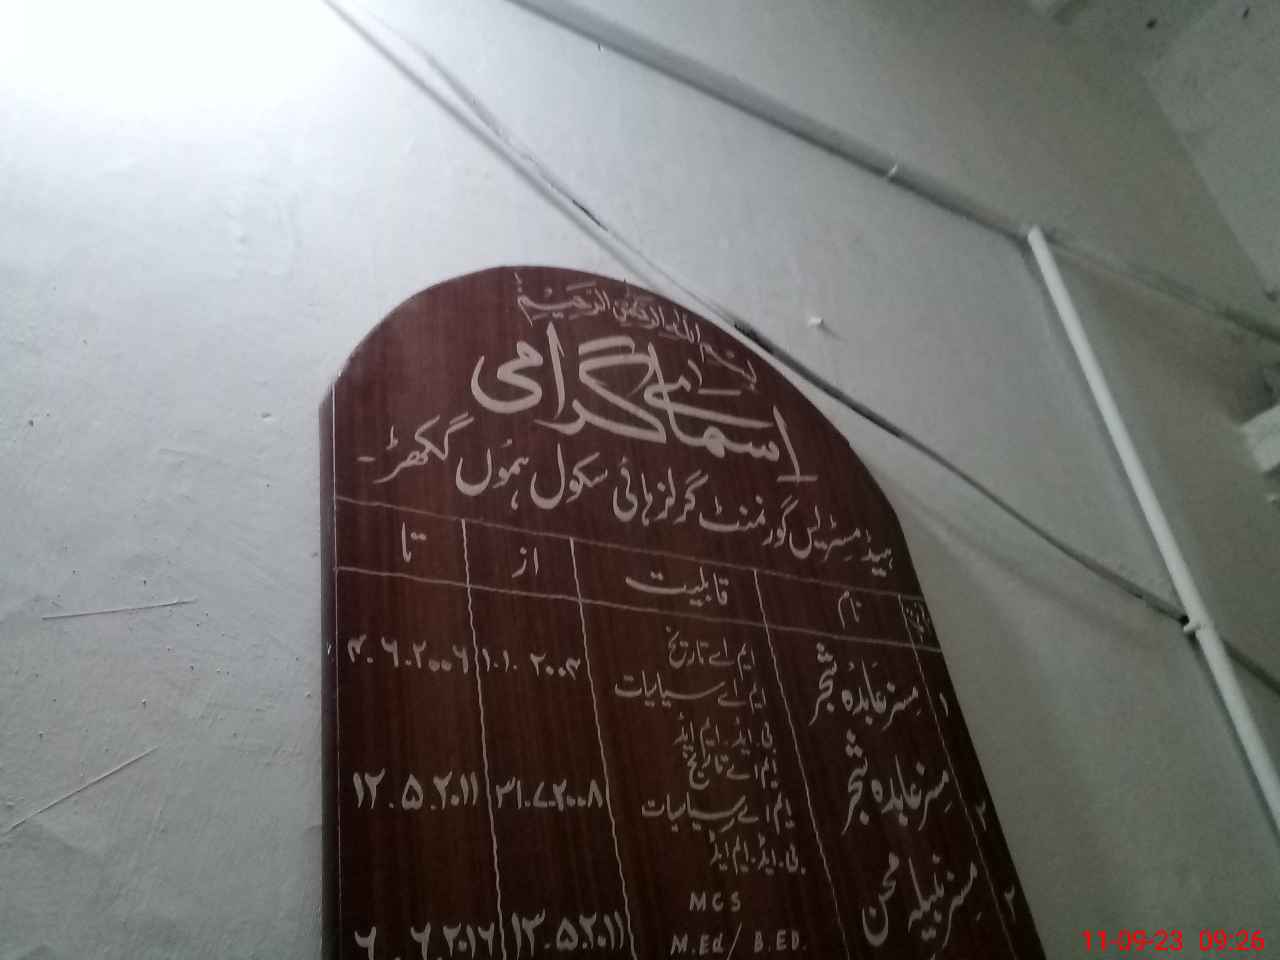 بسم اللہ الرحمٰن الرحیم
اسمائے گرامی
ہیڈ مسٹریس گورنمنٹ گرلز ہائی سکول ہموں گکھڑ۔
نام قابلیت از تا
۱ مسز عابدہ شجر ایم اے تاریخ ۱.۱۰.۲۰۰۴ ۴.۶.۲۰۰۶
ایم اے سیاسیات
بی.ایڈ.ایم ایڈ
۲ مسز عابدہ شجر ایم اے تاریخ ۳۱.۷.۲۰۰۸ ۱۲.۵.۲۰۱۱
ایم اے سیاسیات
بی.ایڈ.ایم ایڈ
۳ مسز نبیلہ محسن MCS ۱۳.۵.۲۰۱۱ ۶.۶.۲۰۱۶
M.Ed/ B.ED.
11-09-23 09:26